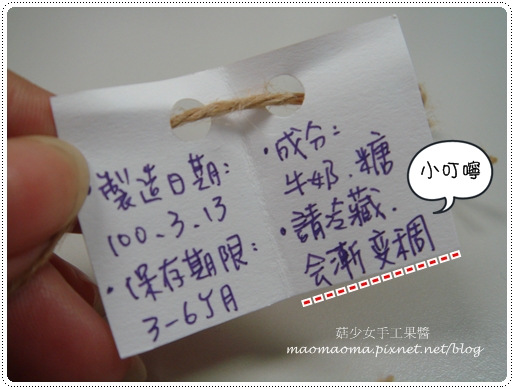 ・製造日期：
100、3、13
・保存期限：
3-6个月
・成分：
牛奶、糖
・請冷藏、
会漸變稠
小叮嚀
菇少女手工果醬
maomaoma.pixnet.net/blog